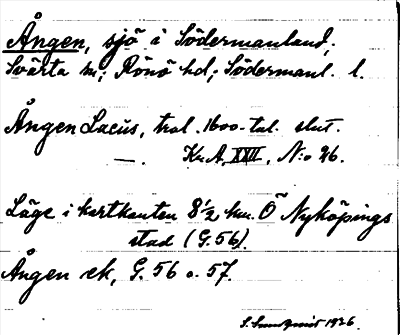 Ången, sjö i Södermanland;
Svärta sn; Rönö hd; Södermanl. l.
Ången Lacus, trol. 1600-tal. slut.
—. Kr. A. XVII, N:o 26.
Läge i kartkanten 8 1/2 km. Ö Nyköpings
stad (G. 56).
Ången ek, G. 56 o. 57.
S. Sundquist 1926.